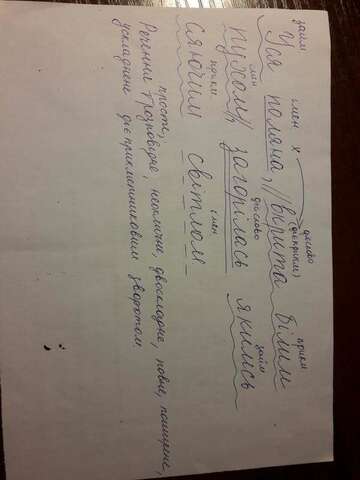 займ імен х дієслово (дієприкм) прикм
Уся поляна, // вкрита білим
імен дієслово займ
пухом //, загорілась якимсь
прикм імен
сяючим світлом
просте,
Речення розповідне, неоклична, двоскладне, повне, поширене,
ускладнене дієприкметниковим зворотом.